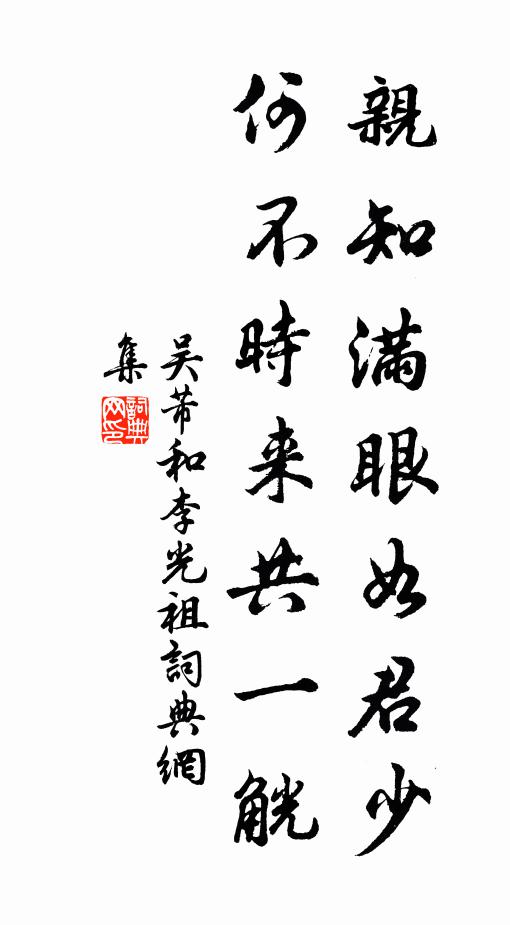 親知滿眼如君少
何不時来共一觥
吴芾和李光祖詞典網
集
詞典
网印